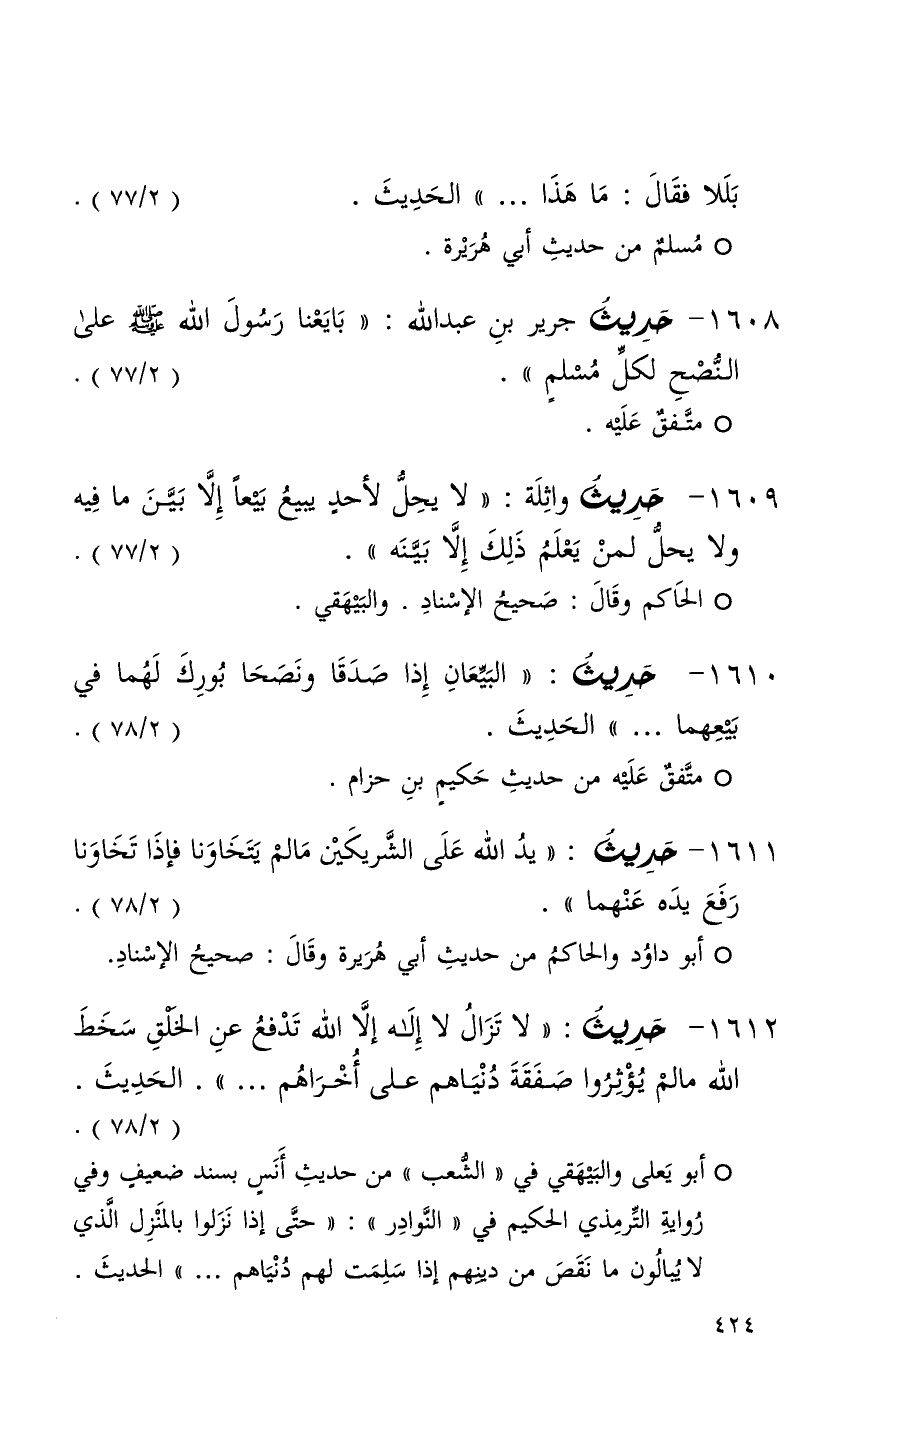 بَلَلا فقَالَ : مَا هَذَا ... » الحَدِيثَ . ( ٧٧/٢ ) .
○ مُسلمٌ من حديثِ أبي هُرَيْرة .
١٦٠٨- حَدِيثُ جرير بنِ عبدالله : « بَايَعْنا رَسُولَ الله ﷺ علىٰ
النُّصْحِ لكلِّ مُسْلمٍ » . ( ٧٧/٢ ) .
○ متَّفقٌ عَلَيْه .
١٦٠٩- حَدِيثُ واثِلَة : « لا يحِلُّ لأحدٍ يبيعُ بَيْعاً إِلَّا بَيَّنَ ما فِيه
ولا يحلُّ لمنْ يَعْلَمُ ذَلِكَ إِلَّا بَيَّنَه » . ( ٧٧/٢ ) .
○ الحَاكم وقَالَ : صَحيحُ الإسْنادِ . والبَيْهَقي .
١٦١٠- حَدِيثُ : « البَيِّعَانِ إِذا صَدَقَا ونَصَحَا بُورِكَ لَهُما في
بَيْعِهما ... » الحَدِيثَ . ( ٧٨/٢ ) .
○ متَّفقٌ عَلَيْه من حديثِ حَكيمٍ بنِ حزام .
١٦١١- حَدِيثُ : « يدُ الله عَلَى الشَّريكَيْن مَالمْ يَتَخَاوَنا فإذَا تَخَاوَنا
رَفَعَ يدَه عَنْهما » . ( ٧٨/٢ ) .
○ أبو داوُد والحاكمُ من حديثِ أبي هُرَيرة وقَالَ : صحيحُ الإسْنادِ.
١٦١٢- حَدِيثُ : « لا تَزَالُ لا إِلَٰه إلَّا الله تَدْفعُ عنِ الخَلْقِ سَخَطَ
الله مالمْ يُؤْثِرُوا صَفَقَةَ دُنْيَاهم على أُخْرَاهُم ... » . الحَدِيثَ .
( ٧٨/٢ ) .
○ أبو يَعلى والبَيْهَقي في « الشُّعب » من حديثِ أَنَسٍ بسند ضعيفٍ وفي
رُوايةِ التِّرمِذي الحكيم في « النَّوادِر » : « حتَّى إذا نَزَلوا بالمَنْزِل الَّذي
لا يُبالُون ما نَقَصَ من دينِهم إذا سَلِمَت لهم دُنْيَاهم ... » الحديثَ .
٤٢٤